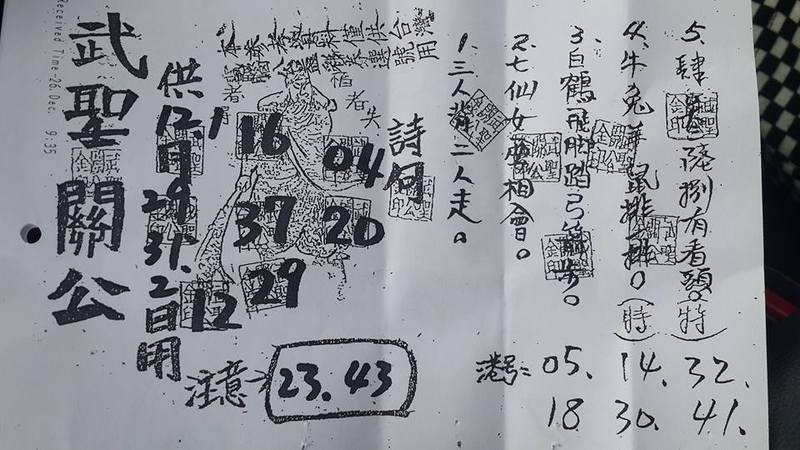 Received Time 26.Dec. 9:35
武聖關公
供12.1月
29
31.2日用
16
04
37
20
29
12
注意
23.43
詩句
1.三人薛二人走。
2.七仙女慶相會。
3.白鶴飛脚踏弓箭步。
4.牛兔羊鼠排排。(特)
5.肆 陸捌有看頭。(特)
港号: 05. 14. 32.
18 30. 41.